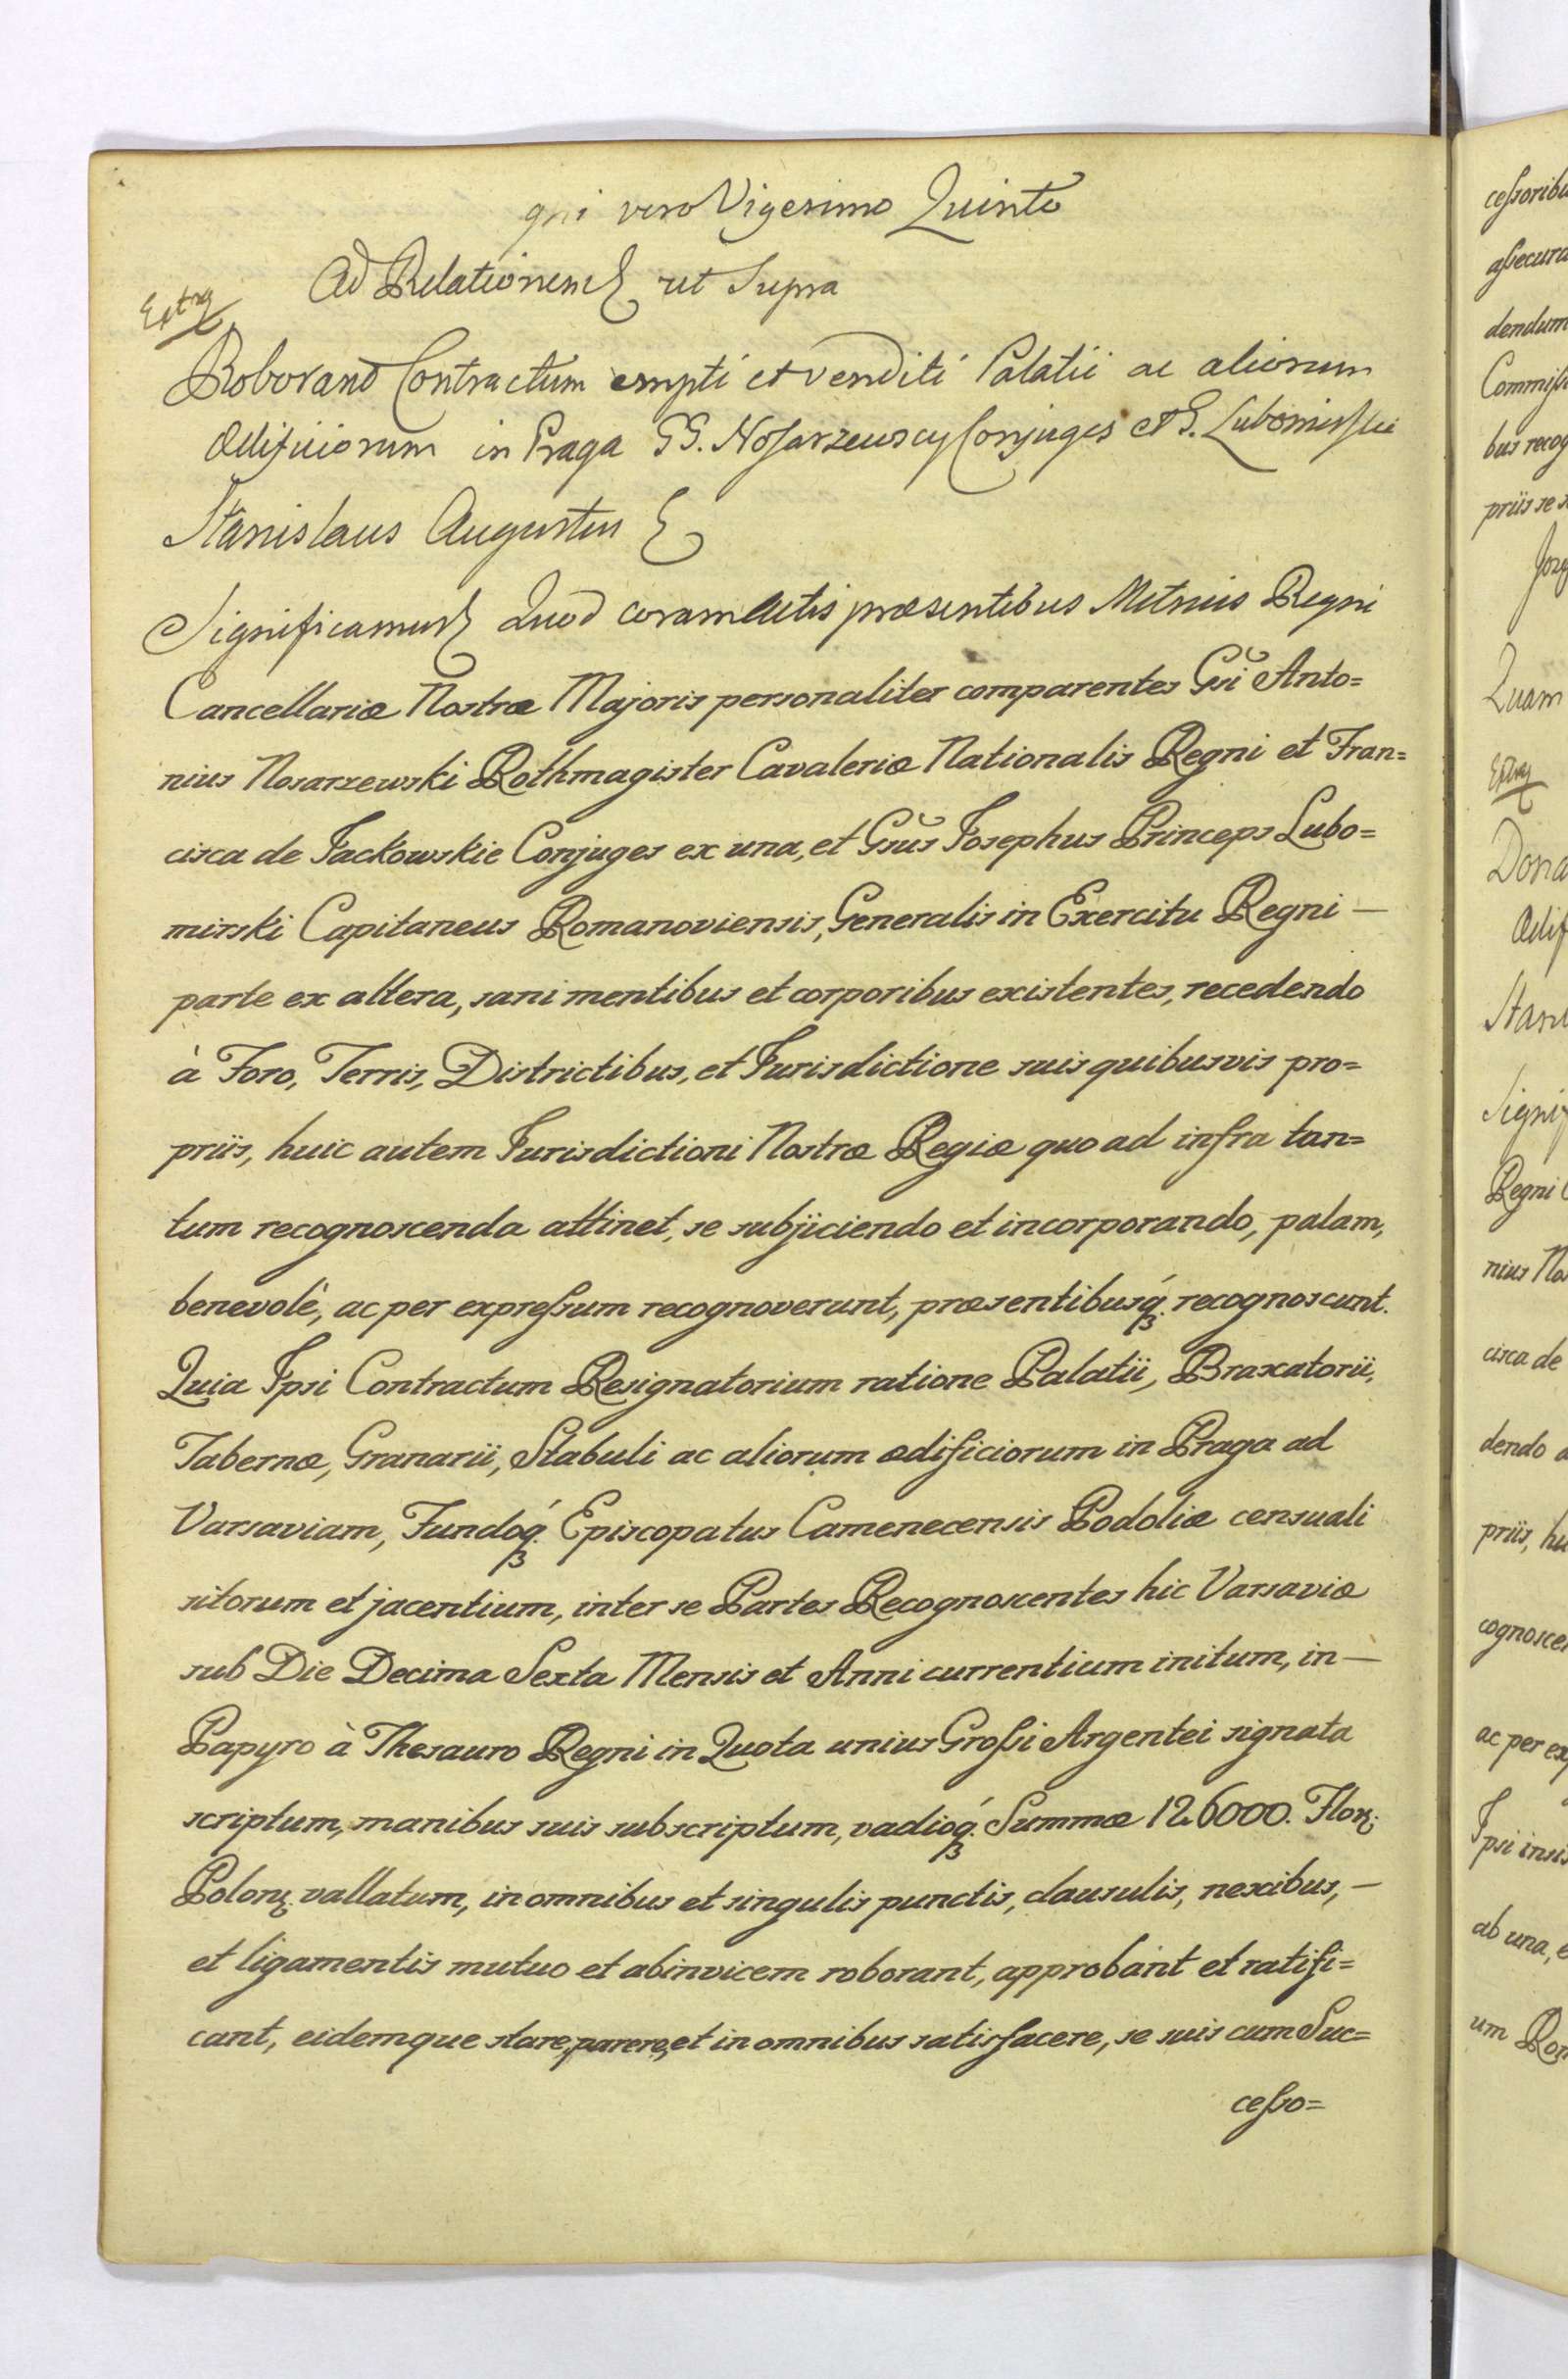 gni vero Vigesimo Quinto
Ad Relationem ut Supra
Extra
Roborand Contractum empti et venditi Palatii ac aliorum
Ædificiorum in Praga GG. Nosarzewscy Conjuges et G. Lubomirski
Stanislaus Augustus
Significamus Quod coram Actis præsentibus Metrices Regni
Cancellariæ Nostræ Majoris personaliter comparentes Gsi Anto=
nius Nosarzewski Rothmagister Cavaleriæ Nationalis Regni et Fran=
cisca de Jackowskie Conjuges ex una, et Gsus Josephus Princeps Lubo=
mirski Capitaneus Romanoviensis, Generalis in Exercitu Regni —
parte ex altera, sani mentibus et corporibus existentes, recedendo
à Foro, Terris, Districtibus, et Jurisdictione suis quibusvis pro=
priis, huic autem Jurisdictioni Nostræ Regiæ quo ad infra tan=
tum recognoscenda attinet, se subjiciendo et incorporando, palam,
benevolè, ac per expreſsum recognoverunt, præsentibusq́ꝫ recognoscunt.
Quia Ipsi Contractum Resignatorium ratione Palatii, Braxatorii,
Tabernæ, Granarii, Stabuli ac aliorum ædificiorum in Praga ad
Varsaviam, Fundoq́ꝫ Episcopatus Camenecensis Podoliæ censuali
sitorum et jacentium, inter se Partes Recognoscentes hic Varsaviæ
sub Die Decima Sexta Mensis et Anni currentium initum, in —
Papyro à Thesauro Regni in Quota unius Groſsi Argentei signata
scriptum, manibus suis subscriptum, vadioq́ꝫ Summæ 126000. Floꝝ.
Polonꝝ. vallatum, in omnibus et singulis punctis, clausulis, nexibus, —
et ligamentis mutuo et abinvicem roborant, approbant et ratifi=
cant, eidemque stare, parere, et in omnibus satisfacere, se suis cum Suc=
ceſso=
ceſsoribu
aſsecura
dendum
Commiſsi
bus recog
priis se s
Quam
Extra
Dona
Ædif
Stani
Signif
Regni C
nius No
cisca de
dendo a
priis, hu
cognosce
ac per ex
Ipsi insi
ab una, e
um Rom